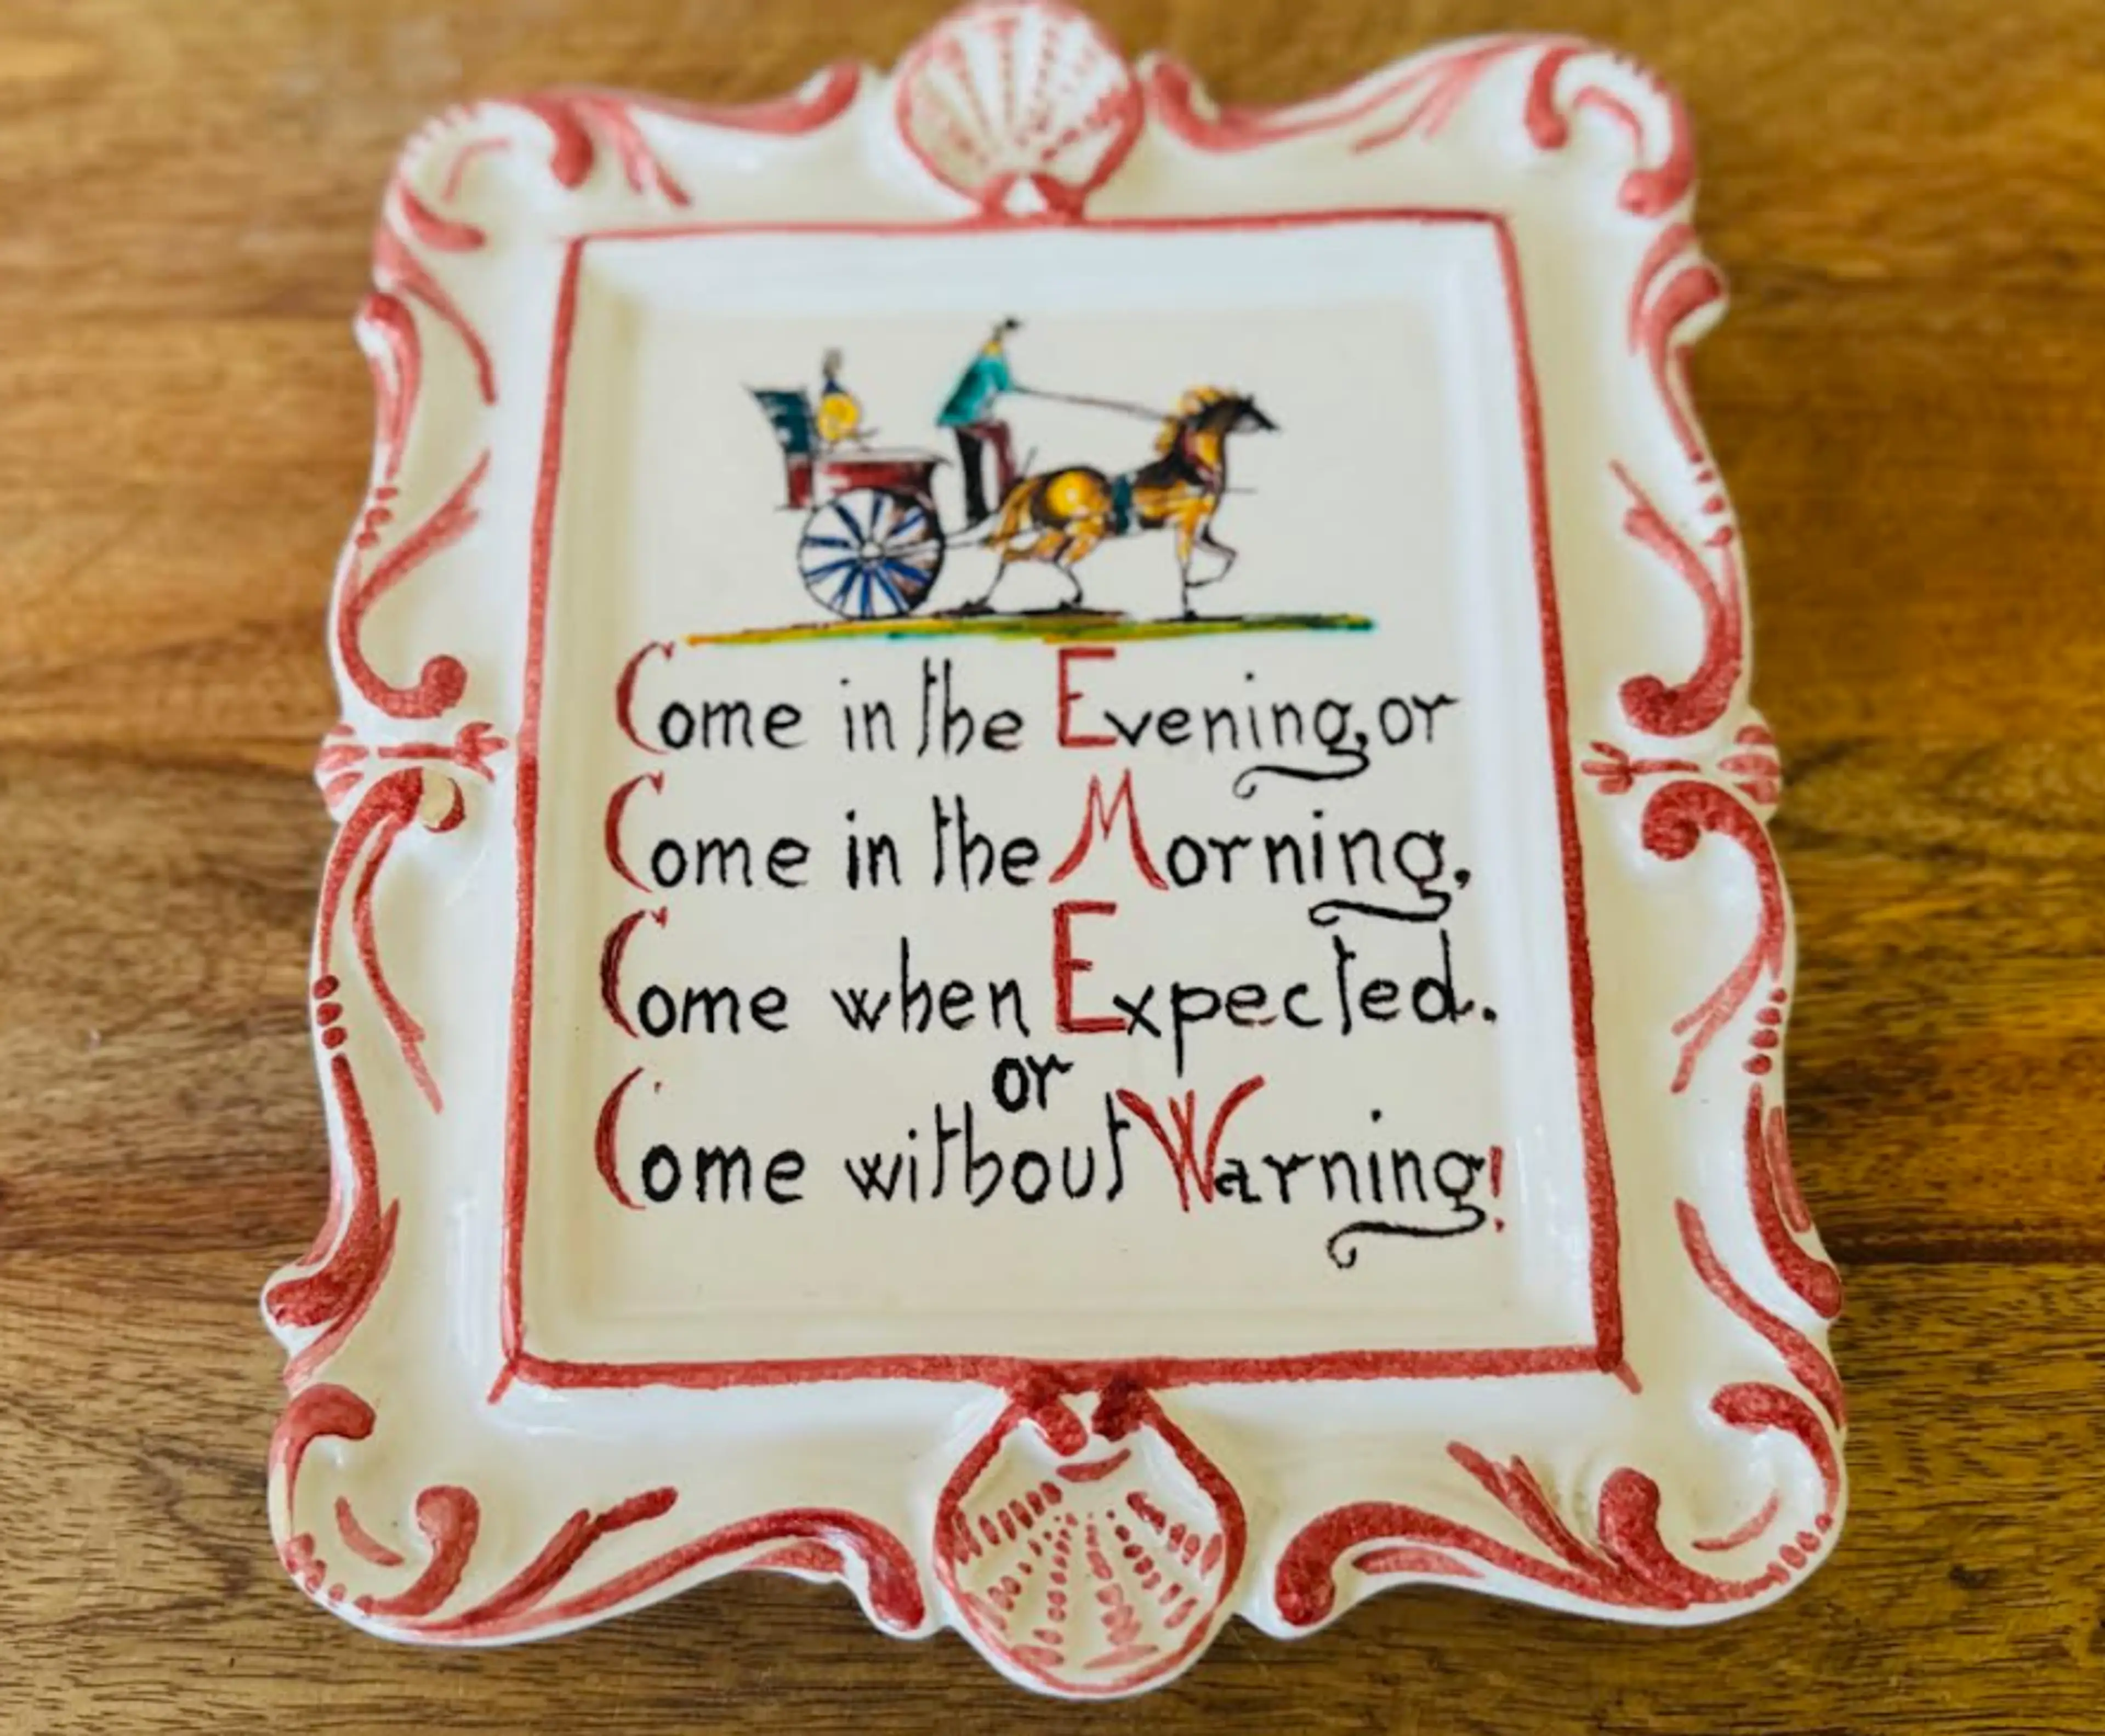 Come in the Evening, or
Come in the Morning,
Come when Expected.
or
Come without Warning!